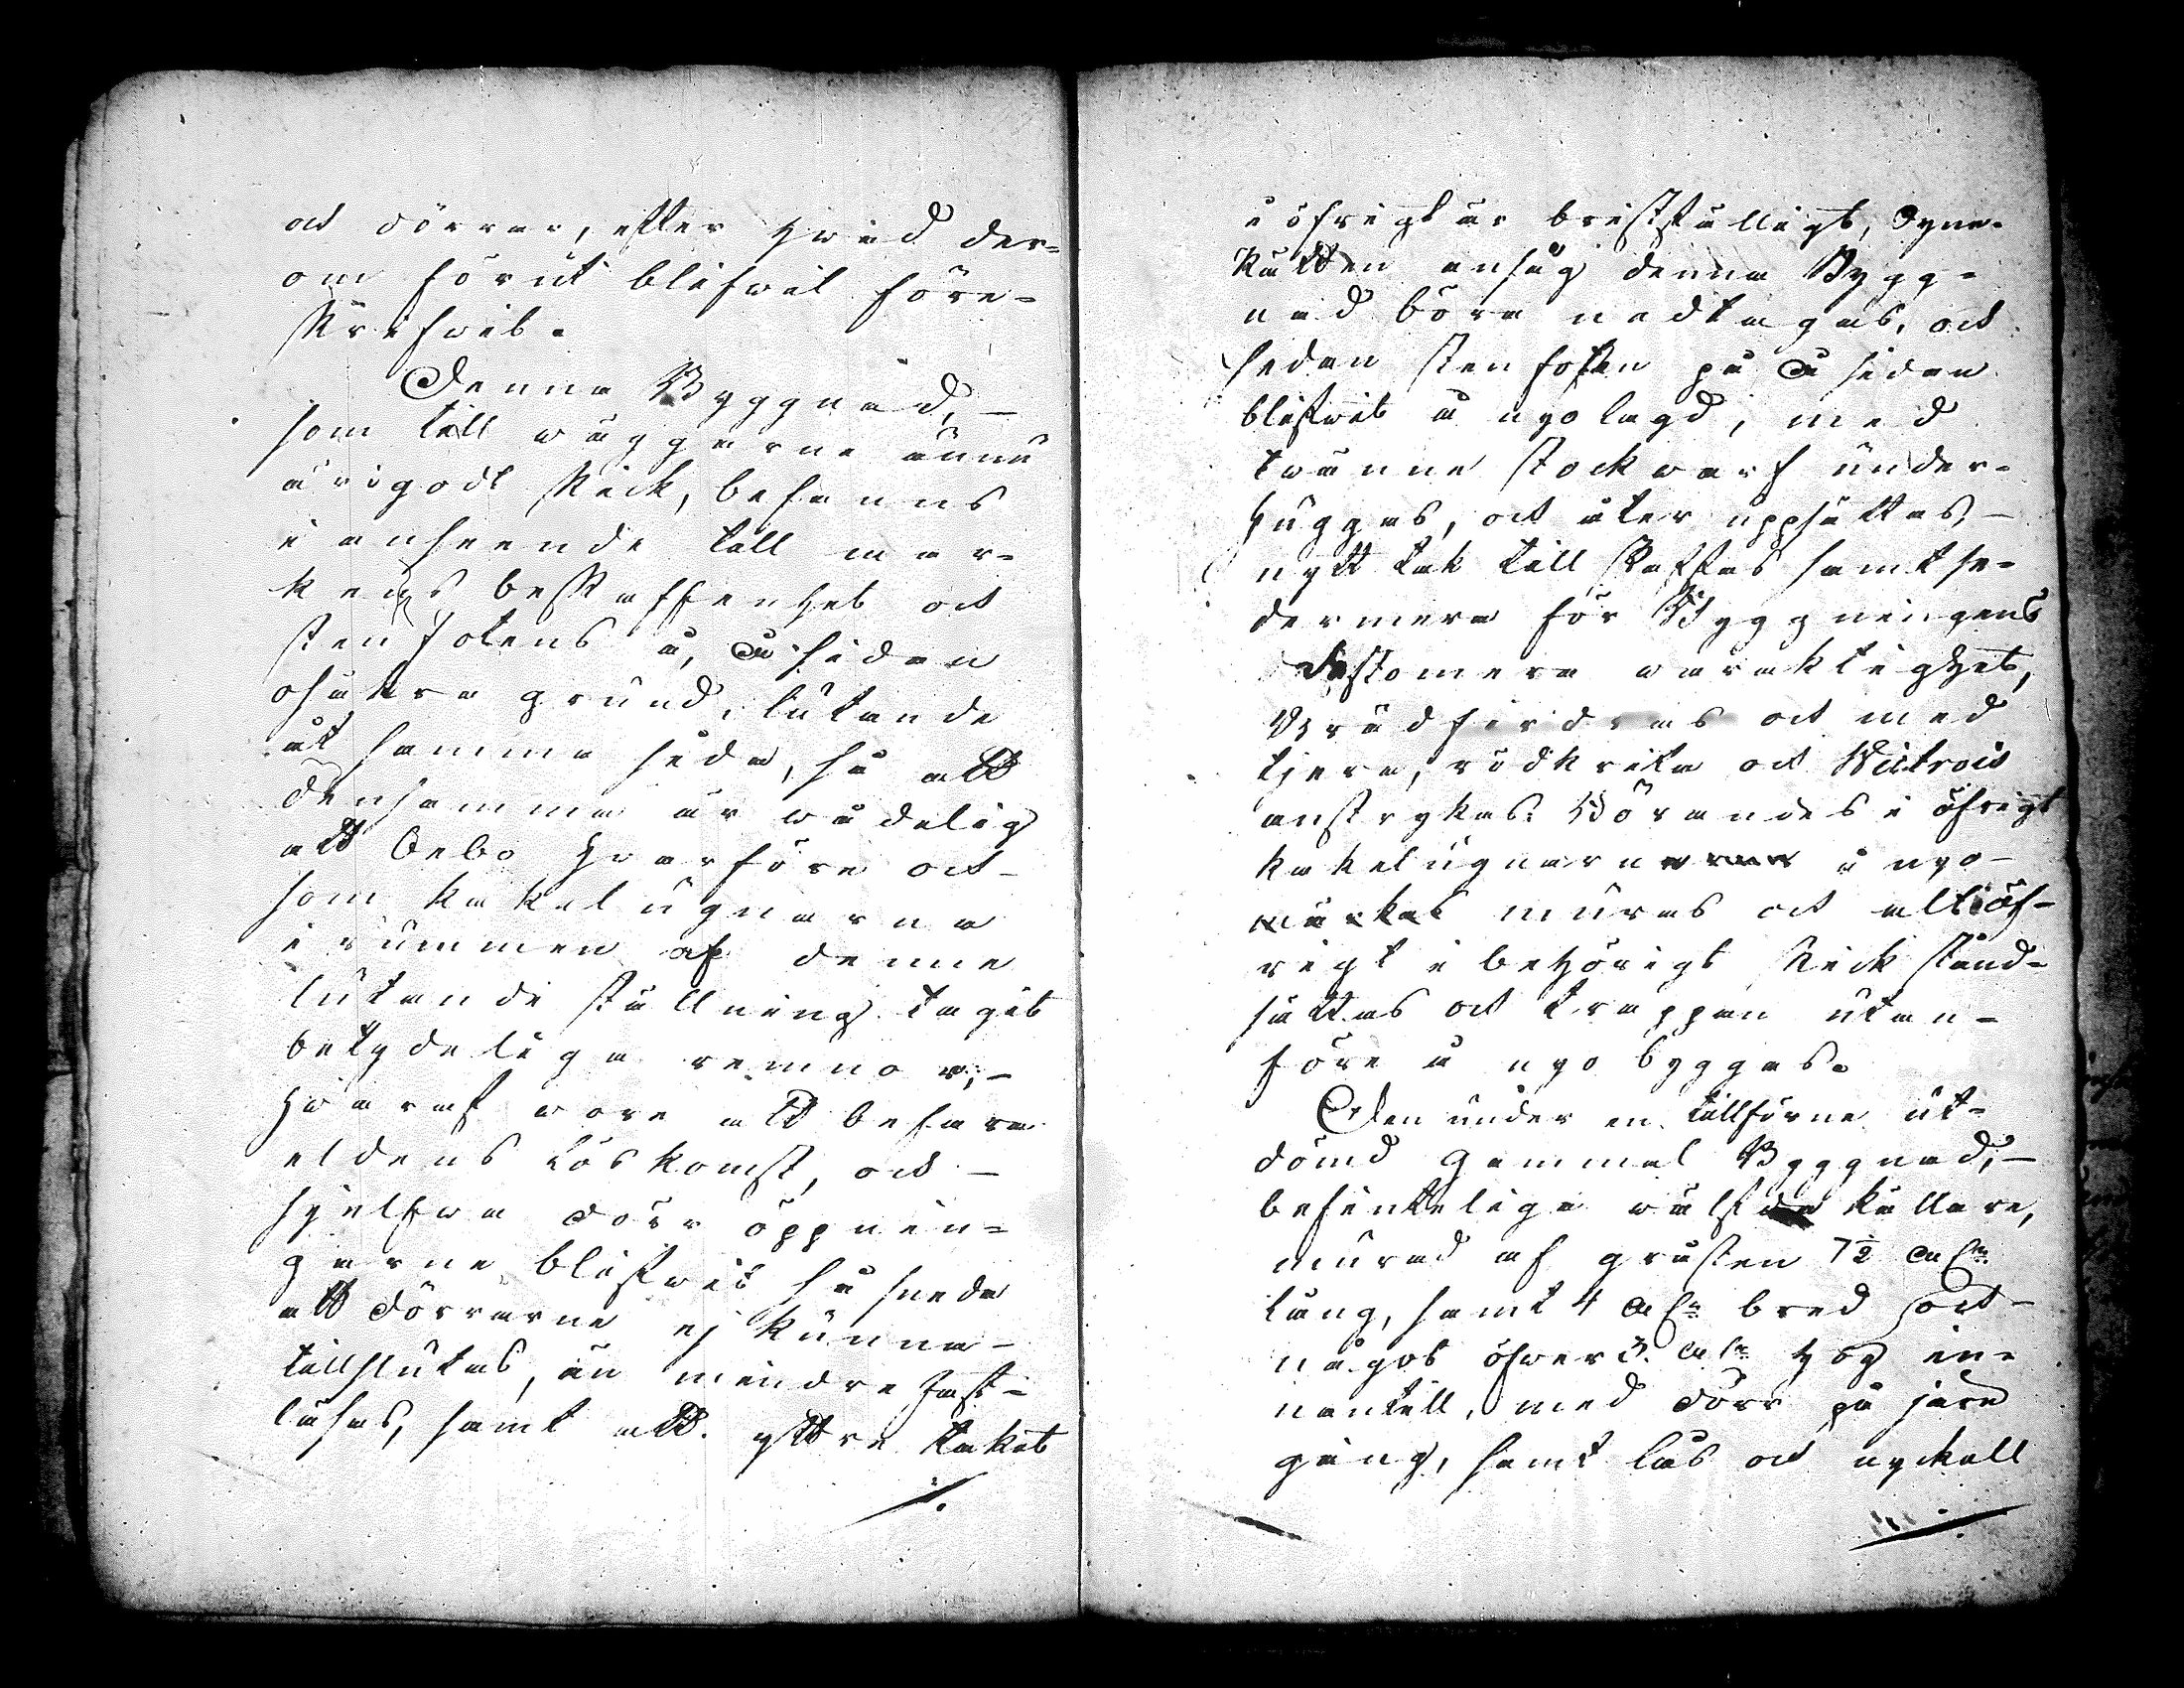 och dörrar, efter hwad der=
om förut blifwit före=
skrifwit.
Denna Byggnad, –
som till wäggarne ännu
är i godt skick, befanns
i anseende till mar=
kens beskaffenhet och
stenfotens å, ena sidan
osäkra grund, lutande
åt samma sida, så att
densamma är wådelig
att bebo hwarföre och –
som kakelugnarna
i rummen af denna
lutande ställning tagit
betydeliga remnor, –
hwaraf wore att befara
eldens löskomst, och –
sjelfwa dörr öppnin=
garne blifwit så sneda
att dörrarne ej kunna –
tillslutas, än mindre Jgen=
låsas, samt att yttre taket
./.
i öfrigt är bristfälligt, Syne=
Rätten ansåg denna Bygg=
nad böra nedtagas, och
sedan stenfoten på ena sidan
blifwit å nyo lagd, med
twänne stockwarf under=
huggas, och åter uppsättas, –
nytt tak till skaffas samt se=
dermera för Byggningens
destomera waraktighet,
Brädfordras och med
tjera, rödkrita och Witriol
anstrykas. Börandes i öfrigt
kakelugnarna å nyo –
muras och alltöf=
rigt i behörigt skick ständ=
sättas och trappan utan=
före å nyo byggas.
Den under en tillförne ut=
dömd gammal Byggnad, –
befinteliga wälfda källare,
murad af gråsten 7½ aln
lång, samt 4 aln bred och –
något öfwer 3. aln hög in=
nantill, med dörr på järn
gång, samt lås och nyckell
./.